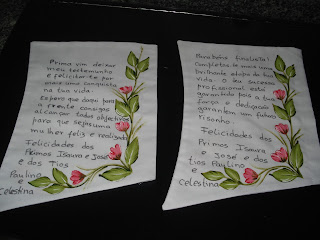 Prima vim deixar
meu testemunho
e felicitarte por
mais uma conquista
na tua vida.
Espero que daqui para
a frente consigas
alcançar todos objectivos
para que sejas uma
mulher feliz e realizada
Felicidades dos
Primos Isaura e José
e dos Tios
Paulino
e Celestina
Parabéns finalista!
Completas-te mais uma
brilhante etapa da tua
vida. O teu sucesso
profissional está
garantido pois a tua
força e dedicação
garantem um futuro
risonho.
Felicidades dos
Primos Isaura
e José e dos
tios Paulino
e Celestina